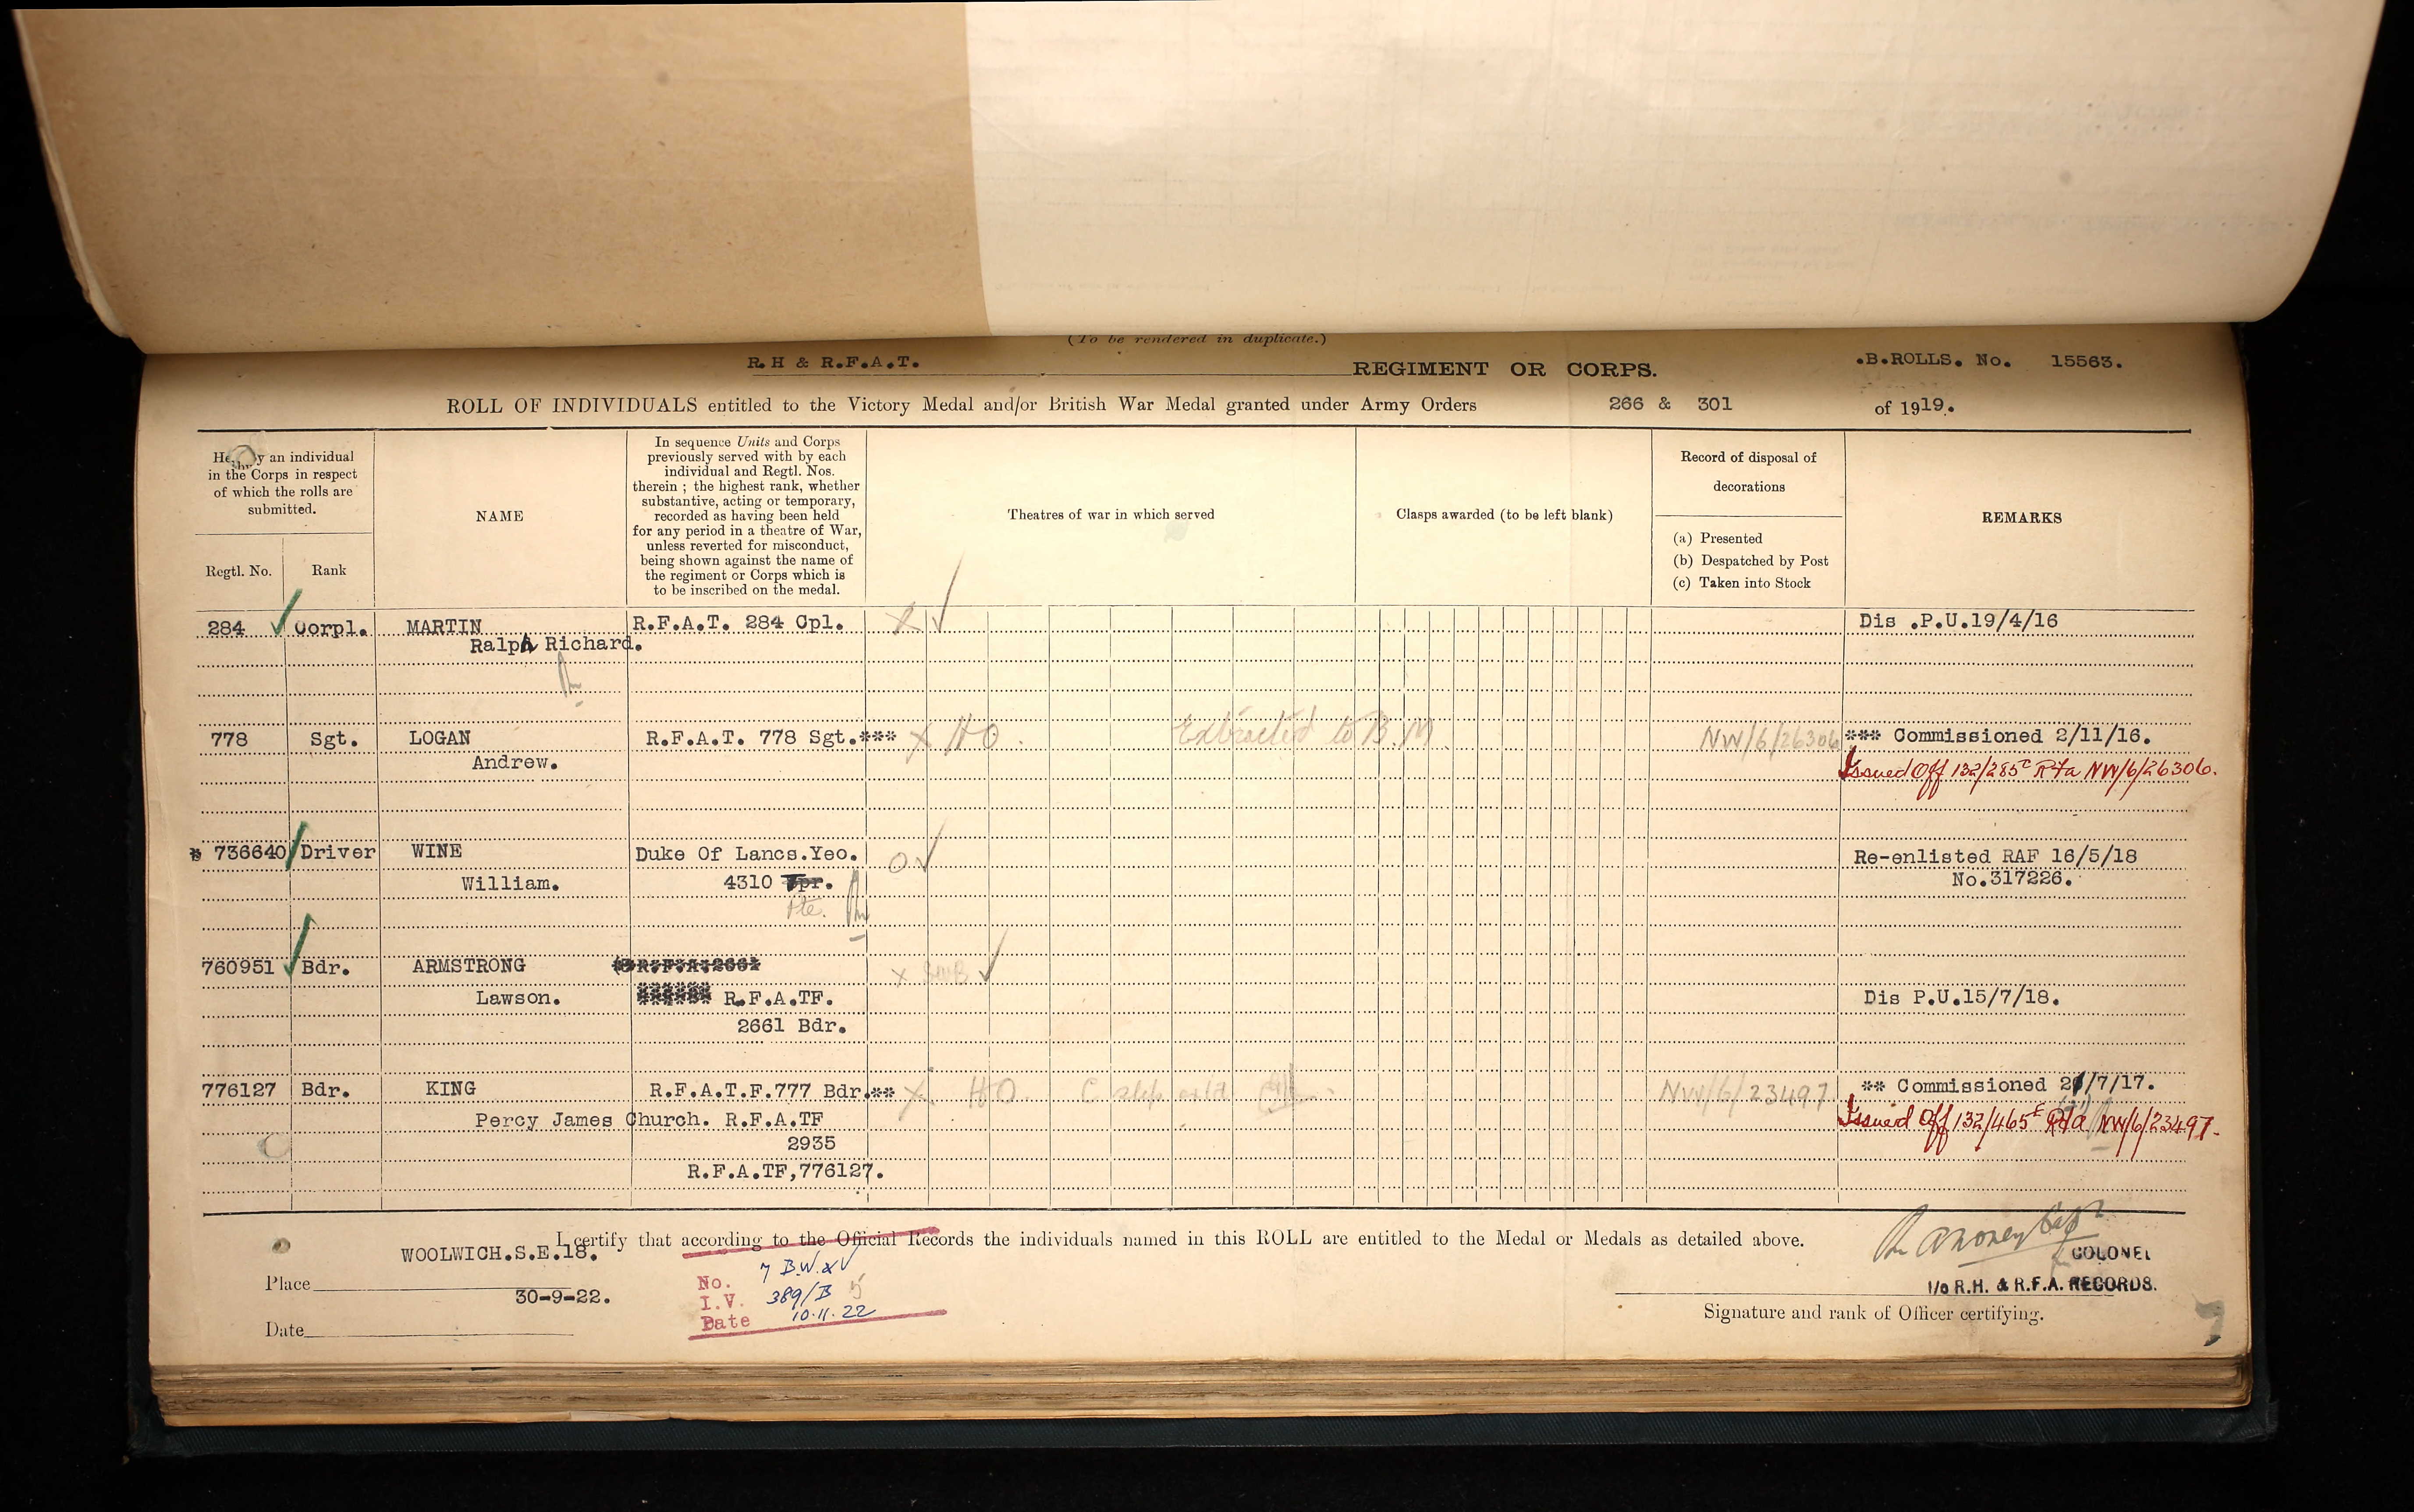 (To be rendered in duplicate.)
R.H & R.F.A.T. REGIMENT OR CORPS. .B.ROLLS. No. 15563.
ROLL OF INDIVIDUALS entitled to the Victory Medal and/or British War Medal granted under Army Orders 266 & 301 of 1919.
He by an individual
in the Corps in respect
of which the rolls are
submitted.
Regtl. No. Rank
NAME
In sequence Units and Corps
previously served with by each
individual and Regtl. Nos.
therein ; the highest rank, whether
substantive, acting or temporary,
recorded as having been held
for any period in a theatre of War,
unless reverted for misconduct,
being shown against the name of
the regiment or Corps which is
to be inscribed on the medal.
Theatres of war in which served
Clasps awarded (to be left blank)
Record of disposal of
decorations
(a) Presented
(b) Despatched by Post
(c) Taken into Stock
REMARKS
284 Corpl. MARTIN R.F.A.T. 284 Cpl. X Dis .P.U.19/4/16
Ralph Richard.
778 Sgt. LOGAN R.F.A.T. 778 Sgt.*** X HO. Extracted to B.M. NW/6/26306 *** Commissioned 2/11/16.
Andrew. Issued Off 132/285c Rfa NW/6/26306.
* 736640 Driver WINE Duke Of Lancs.Yeo. O Re-enlisted RAF 16/5/18
William. 4310 Tpr. No.317226.
Pte.
760951 Bdr. ARMSTRONG R.F.A.2661 X
Lawson. R.F.A.TF. Dis P.U.15/7/18.
2661 Bdr.
776127 Bdr. KING R.F.A.T.F.777 Bdr.** X HO. C slip NW/6/23497 ** Commissioned 21/7/17.
Percy James Church. R.F.A.TF Issued Off 132/465E Rfa NW/6/23497.
2935
R.F.A.TF,776127.
I certify that according to the Official Records the individuals named in this ROLL are entitled to the Medal or Medals as detailed above.
WOOLWICH.S.E.18.
Place
30-9-22.
Date
No. 7 B.W.&V
I.V. 389/B 5
Date 10.11.22
COLONEL
I/c R.H. & R.F.A. RECORDS.
Signature and rank of Officer certifying.